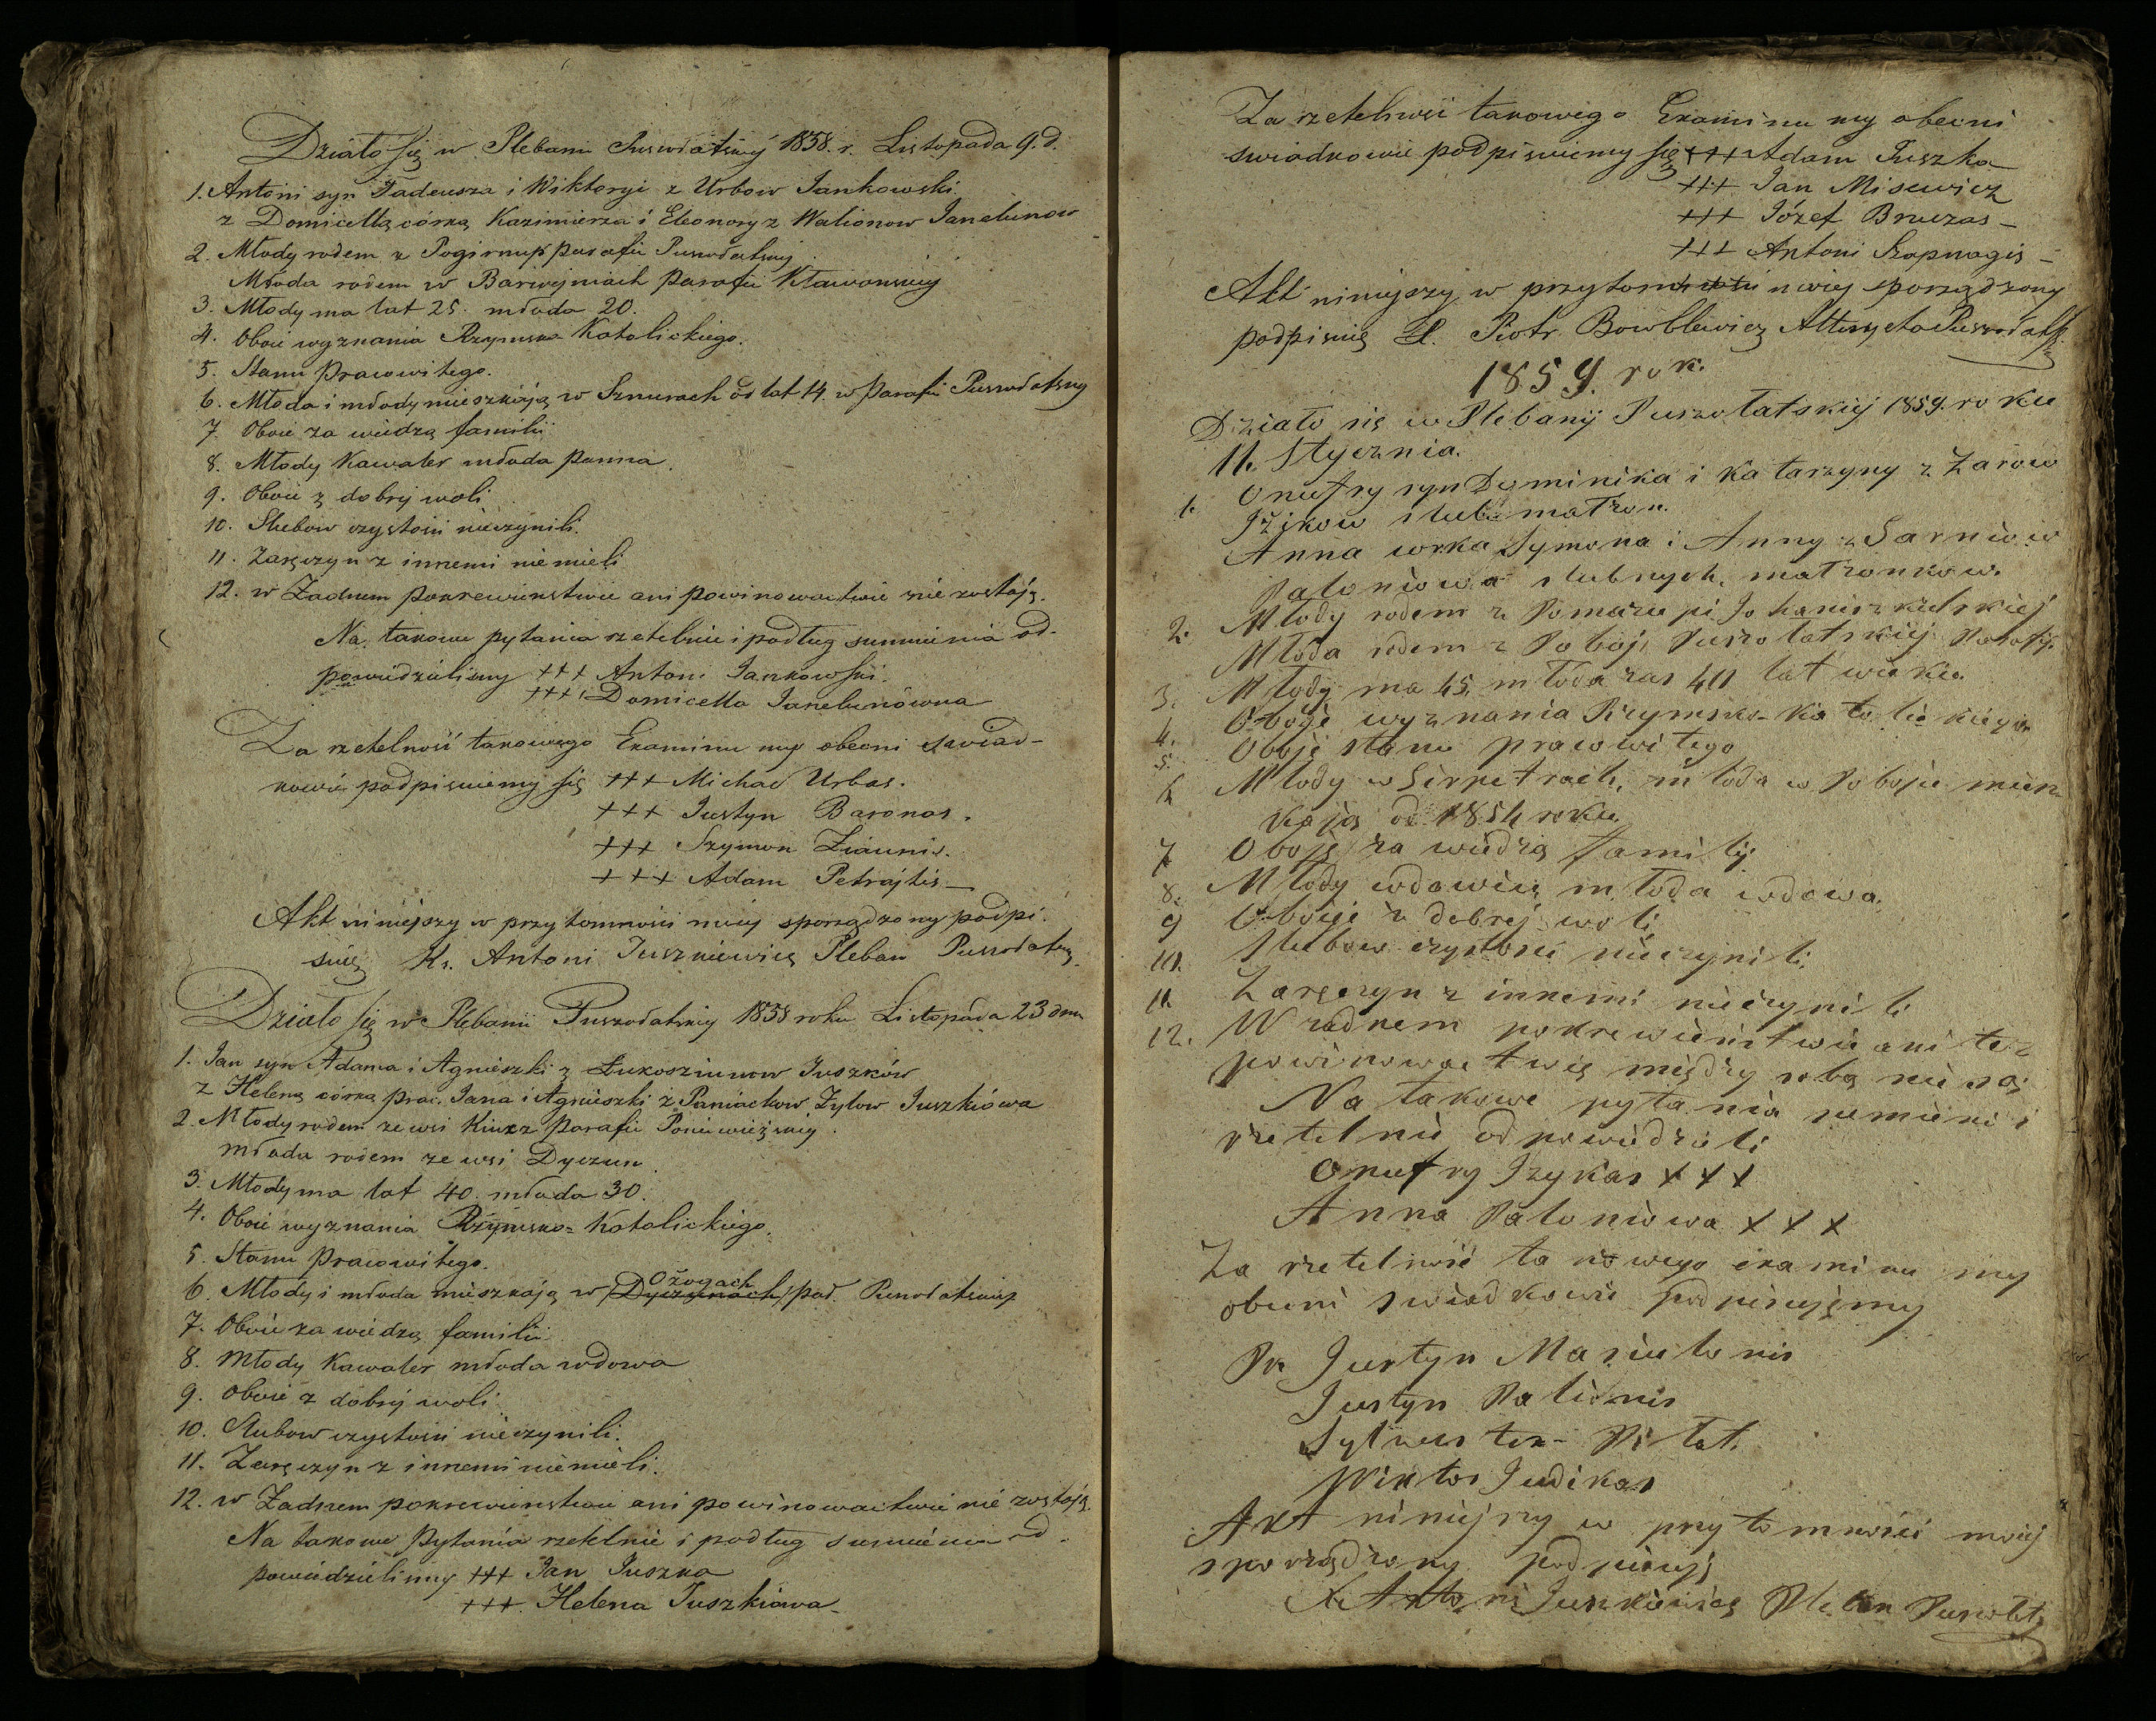 Działo się w Plebanii Puszołatskiej 1858. r. Listopada 9. d.
1. Antoni syn Tadeusza i Wiktoryi z Urbow Jankowski
z Domicellą córką Kazimierza i Eleonory z Walionow Janelunow
2. Młody rodem z parafii Puszołatskiej
Młoda rodem w parafii
3. Młody ma lat 25. młoda 20.
4. Oboie wyznania Rzymsko Katolickiego.
5. Stanu Pracowitego.
6. Młoda i młody mieszkają w Sznurach od lat 14. w Parafii Puszołatskiej
7. Oboie za wiedzą familii
8. Młody Kawaler młoda panna.
9. Oboie z dobrej woli
10. Slubow czystości nieczynili.
11. Zaręczyn z innemi niemieli
12. w Zadnem pokrewieństwie ani powinowactwie nie zostają.
Na takowe pytania rzetelnie i podług sumnienia od-
powiedzieliśmy +++ Antoni Jankowski.
+++ Domicella Janelunówna
Za rzetelność takowego Examinu my obecni swiad-
kowie podpisuiemy się +++ Michał Urbas.
+++ Justyn Baronas.
+++ Szymon Ziaunis.
+++ Adam Petrajtis
Akt niniejszy w przytomności moiej sporządzony podpi-
suię Ks. Antoni Juszkiewicz Pleban Puszołatski
Działo się w Plebanii Puszołatskiej 1858 roku Listopada 23 dnia
1. Jan syn Adama i Agnieszki z Łukosziunow Juszków
z Heleną córką prac. Jana i Agnieszki z Paniackow Zylow Juszkiowa
2. Młody rodem ze wsi Parafii Poniewieżskiej.
młoda rodem ze wsi Dyczun
3. Młody ma lat 40. młoda 30.
4. Oboie wyznania Rzymsko= Katolickiego.
5. Stanu Pracowitego.
6. Młody i młoda mieszkają w Dyczynach Ożogach par. Puszołatskiej
7. Oboie za wiedzą familii
8. Młody Kawaler młoda wdowa
9. Oboie z dobrej woli
10. Slubow czystości nieczynili.
11. Zaręczyn z innemi niemieli.
12. w Zadnem pokrewieństwie ani powinowactwie nie zostają.
Na takowe Pytania rzetelnie i podług sumnienia od-
powiedzieliśmy +++ Jan Juszka
+++ Helena Juszkiowa
Za rzetelność takowego Examinu my obecni
swiadkowie podpisuiemy się +++ Adam Juszka
+++ Jan Misewicz
+++ Józef Bruczas
+++ Antoni Szapnagis
Akt niniejszy w przytomności moiej sporządzony
podpisuię X. Piotr Bowblewicz Altarysta Puszołatski
1859. rok.
Działo się w Plebanij Puszołatskiej 1859. roku
11. Stycznia.
1. Onufry syn Dominika i Katarzyny z Zarow
Iżikow slub. małżon.
Anna corka Symona i Anny z Sarnow
Paloniowa slubnych małżonkow.
2. Młody rodem z
Młoda rodem z Poboj, Puszołatskiej Parafij.
3. Młody ma 45, młoda zas 40 lat wieku.
4. Oboje wyznania Rzymsko-Katolickiego.
5. Oboje stanu pracowitego
6. Młody w Sirpetrach, młoda w Poboju miesz-
kają od 1854 roku.
7 Oboje za wiedzą familij
8. Młody wdowiec młoda wdowa.
9 Oboje z dobrej woli
10. Slubow czystości nieczynili.
11. Zaręczyn z innemi nieczynili
12. W zadnem pokrewieństwie ani też
powinowactwie między sobą nie są
Na takowe pytania sumienie i
rzetelnie odpowiedzieli
Onufry Izykas + + +
Anna Paloniowa + + +
Za rzetelność takowego examinu my
obecni swiadkowie podpisujemy
Justyn Masiulonis
Justyn Palionis
Sylwester
Wiktor Judikas
Akt niniejszy w przytomności mojej
sporządzony podpisuję
X. Antoni Juszkiewicz Pleban Puszołat.